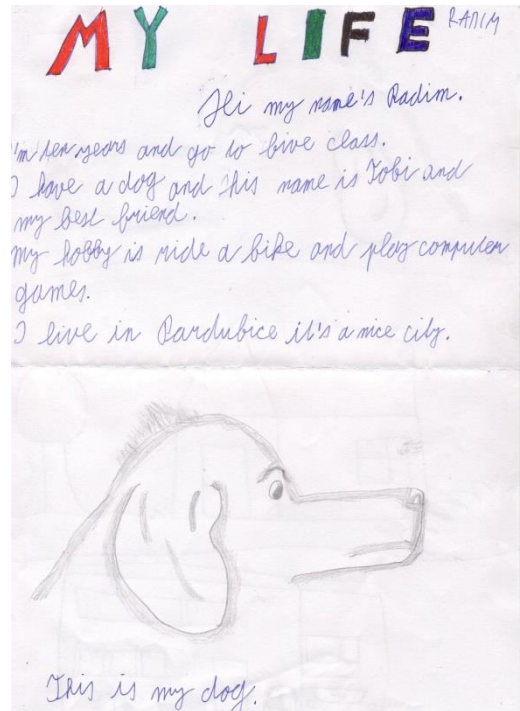 MY LIFE RADIM
Hi my name's Radim.
I'm ten years and go to five class.
I have a dog and this name is Tobi and
my best friend.
my hobby is ride a bike and play computer
games.
I live in Pardubice it's a nice city.
This is my dog.